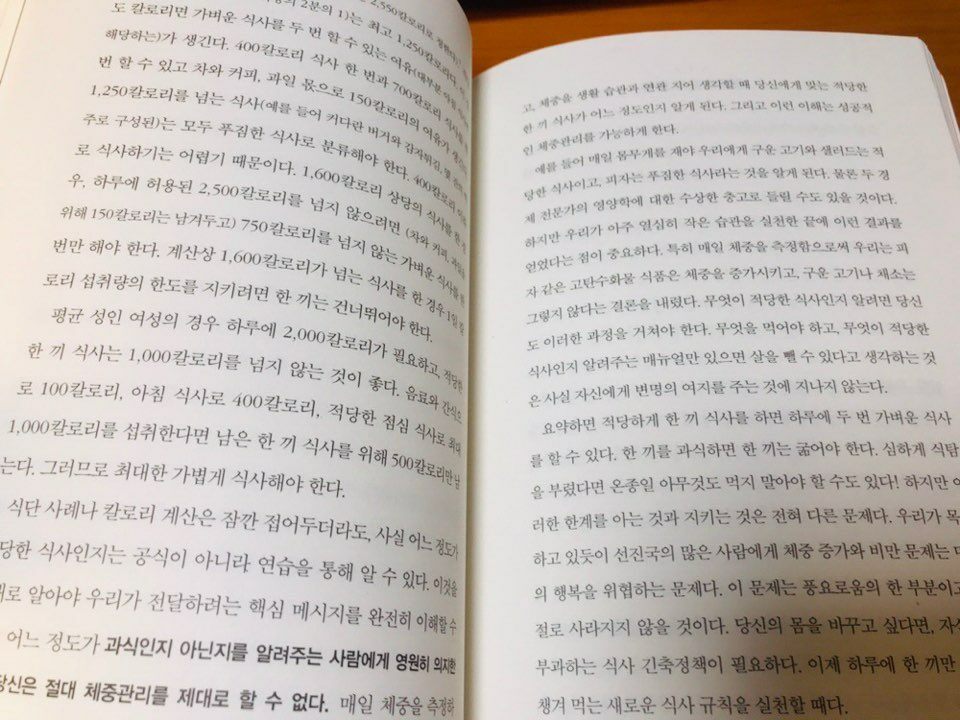 2,550칼로리로
2분의 1)는 최고 1,250칼로리다.
도 칼로리면 가벼운 식사를 두 번 할 수 있는 여유(대부분 아침
해당하는)가 생긴다. 400칼로리 식사 한 번과 700칼로리 식사를
번 할 수 있고 차와 커피, 과일 몫으로 150칼로리의 여유가
1,250칼로리를 넘는 식사(예를 들어 커다란 버거와 감자튀김,
주로 구성된)는 모두 푸짐한 식사로 분류해야 한다. 400칼로리
로 식사하기는 어렵기 때문이다. 1,600칼로리 상당의 식사를 한
우, 하루에 허용된 2,500칼로리를 넘지 않으려면 (차와 커피,
위해 150칼로리는 남겨두고) 750칼로리를 넘지 않는 가벼운 식사를
번만 해야 한다. 계산상 1,600칼로리가 넘는 식사를 한 경우 1일
로리 섭취량의 한도를 지키려면 한 끼는 건너뛰어야 한다.
평균 성인 여성의 경우 하루에 2,000칼로리가 필요하고,
한 끼 식사는 1,000칼로리를 넘지 않는 것이 좋다. 음료와 간식으
로 100칼로리, 아침 식사로 400칼로리, 적당한 점심 식사로 최대
1,000칼로리를 섭취한다면 남은 한 끼 식사를 위해 500칼로리만 남
는다. 그러므로 최대한 가볍게 식사해야 한다.
식단 사례나 칼로리 계산은 잠깐 접어두더라도, 사실 어느 정도가
당한 식사인지는 공식이 아니라 연습을 통해 알 수 있다. 이것을
대로 알아야 우리가 전달하려는 핵심 메시지를 완전히 이해할 수
어느 정도가 과식인지 아닌지를 알려주는 사람에게 영원히 의지한
당신은 절대 체중관리를 제대로 할 수 없다. 매일 체중을 측정하
고, 체중을 생활 습관과 연관 지어 생각할 때 당신에게 맞는 적당한
한 끼 식사가 어느 정도인지 알게 된다. 그리고 이런 이해는 성공적
인 체중관리를 가능하게 한다.
예를 들어 매일 몸무게를 재야 우리에게 구운 고기와 샐러드는 적
당한 식사이고, 피자는 푸짐한 식사라는 것을 알게 된다. 물론 두 경
제 전문가의 영양학에 대한 수상한 충고로 들릴 수도 있을 것이다.
하지만 우리가 아주 열심히 작은 습관을 실천한 끝에 이런 결과를
얻었다는 점이 중요하다. 특히 매일 체중을 측정함으로써 우리는 피
자 같은 고탄수화물 식품은 체중을 증가시키고, 구운 고기나 채소는
그렇지 않다는 결론을 내렸다. 무엇이 적당한 식사인지 알려면 당신
도 이러한 과정을 거쳐야 한다. 무엇을 먹어야 하고, 무엇이 적당한
식사인지 알려주는 매뉴얼만 있으면 살을 뺄 수 있다고 생각하는 것
은 사실 자신에게 변명의 여지를 주는 것에 지나지 않는다.
요약하면 적당하게 한 끼 식사를 하면 하루에 두 번 가벼운 식사
를 할 수 있다. 한 끼를 과식하면 한 끼는 굶어야 한다. 심하게 식탐
을 부렸다면 온종일 아무것도 먹지 말아야 할 수도 있다! 하지만 이
러한 한계를 아는 것과 지키는 것은 전혀 다른 문제다. 우리가 목
하고 있듯이 선진국의 많은 사람에게 체중 증가와 비만 문제는
의 행복을 위협하는 문제다. 이 문제는 풍요로움의 한 부분이고
절로 사라지지 않을 것이다. 당신의 몸을 바꾸고 싶다면,
부과하는 식사 긴축정책이 필요하다. 이제 하루에 한 끼만
챙겨 먹는 새로운 식사 규칙을 실천할 때다.